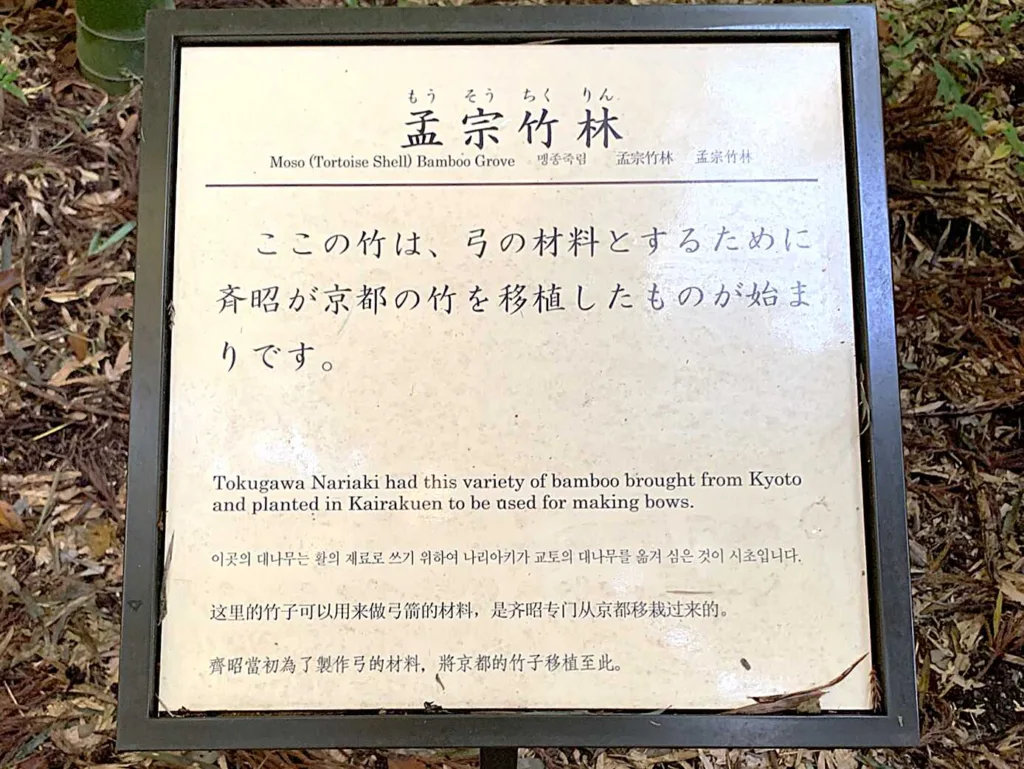 もう そう ちく りん
孟宗竹林
Moso (Tortoise Shell) Bamboo Grove 맹종죽림 孟宗竹林 孟宗竹林
ここの竹は、弓の材料とするために
斉昭が京都の竹を移植したものが始ま
りです。
Tokugawa Nariaki had this variety of bamboo brought from Kyoto
and planted in Kairakuen to be used for making bows.
이곳의 대나무는 활의 재료로 쓰기 위하여 나리아키가 교토의 대나무를 옮겨 심은 것이 시초입니다.
这里的竹子可以用来做弓箭的材料，是齐昭专门从京都移栽过来的。
齊昭當初為了製作弓的材料，將京都的竹子移植至此。